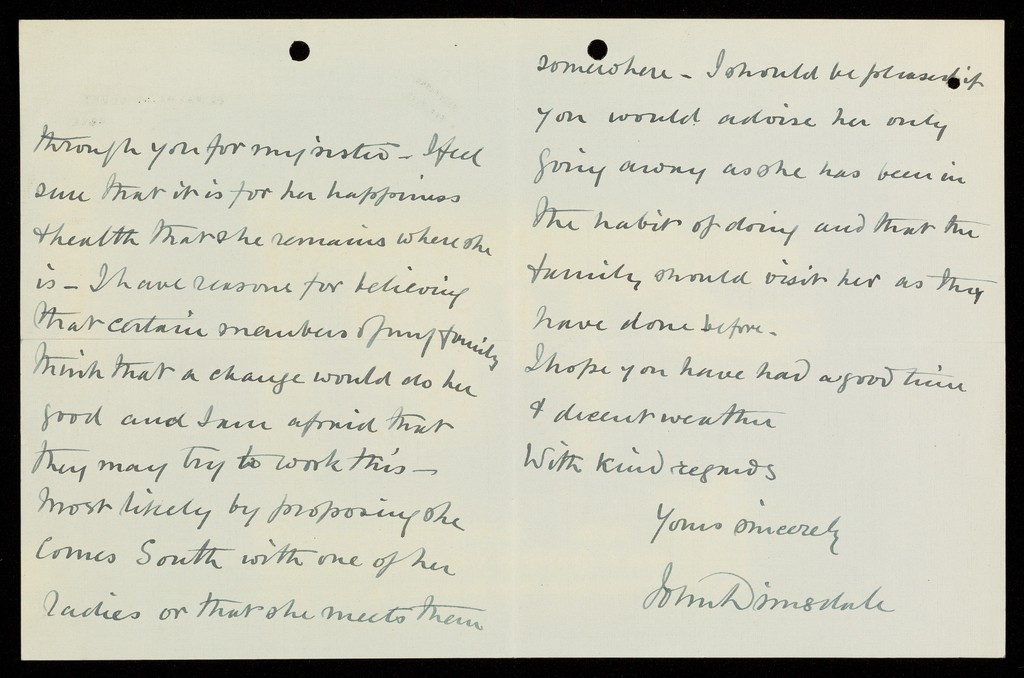 through you for my sister – I feel
sure that it is for her happiness
& health that she remains where she
is – I have reasons for believing
that certain members of my family
think that a change would do her
good and I am afraid that
they may try to work this –
Most likely by proposing she
comes South with one of her
ladies or that she meets them
somewhere – I should be pleased if
you would advise her only
going away as she has been in
the habit of doing and that the
family should visit her as they
have done before.
I hope you have had a good time
& decent weather
With kind regards
Yours sincerely
John Dimsdale